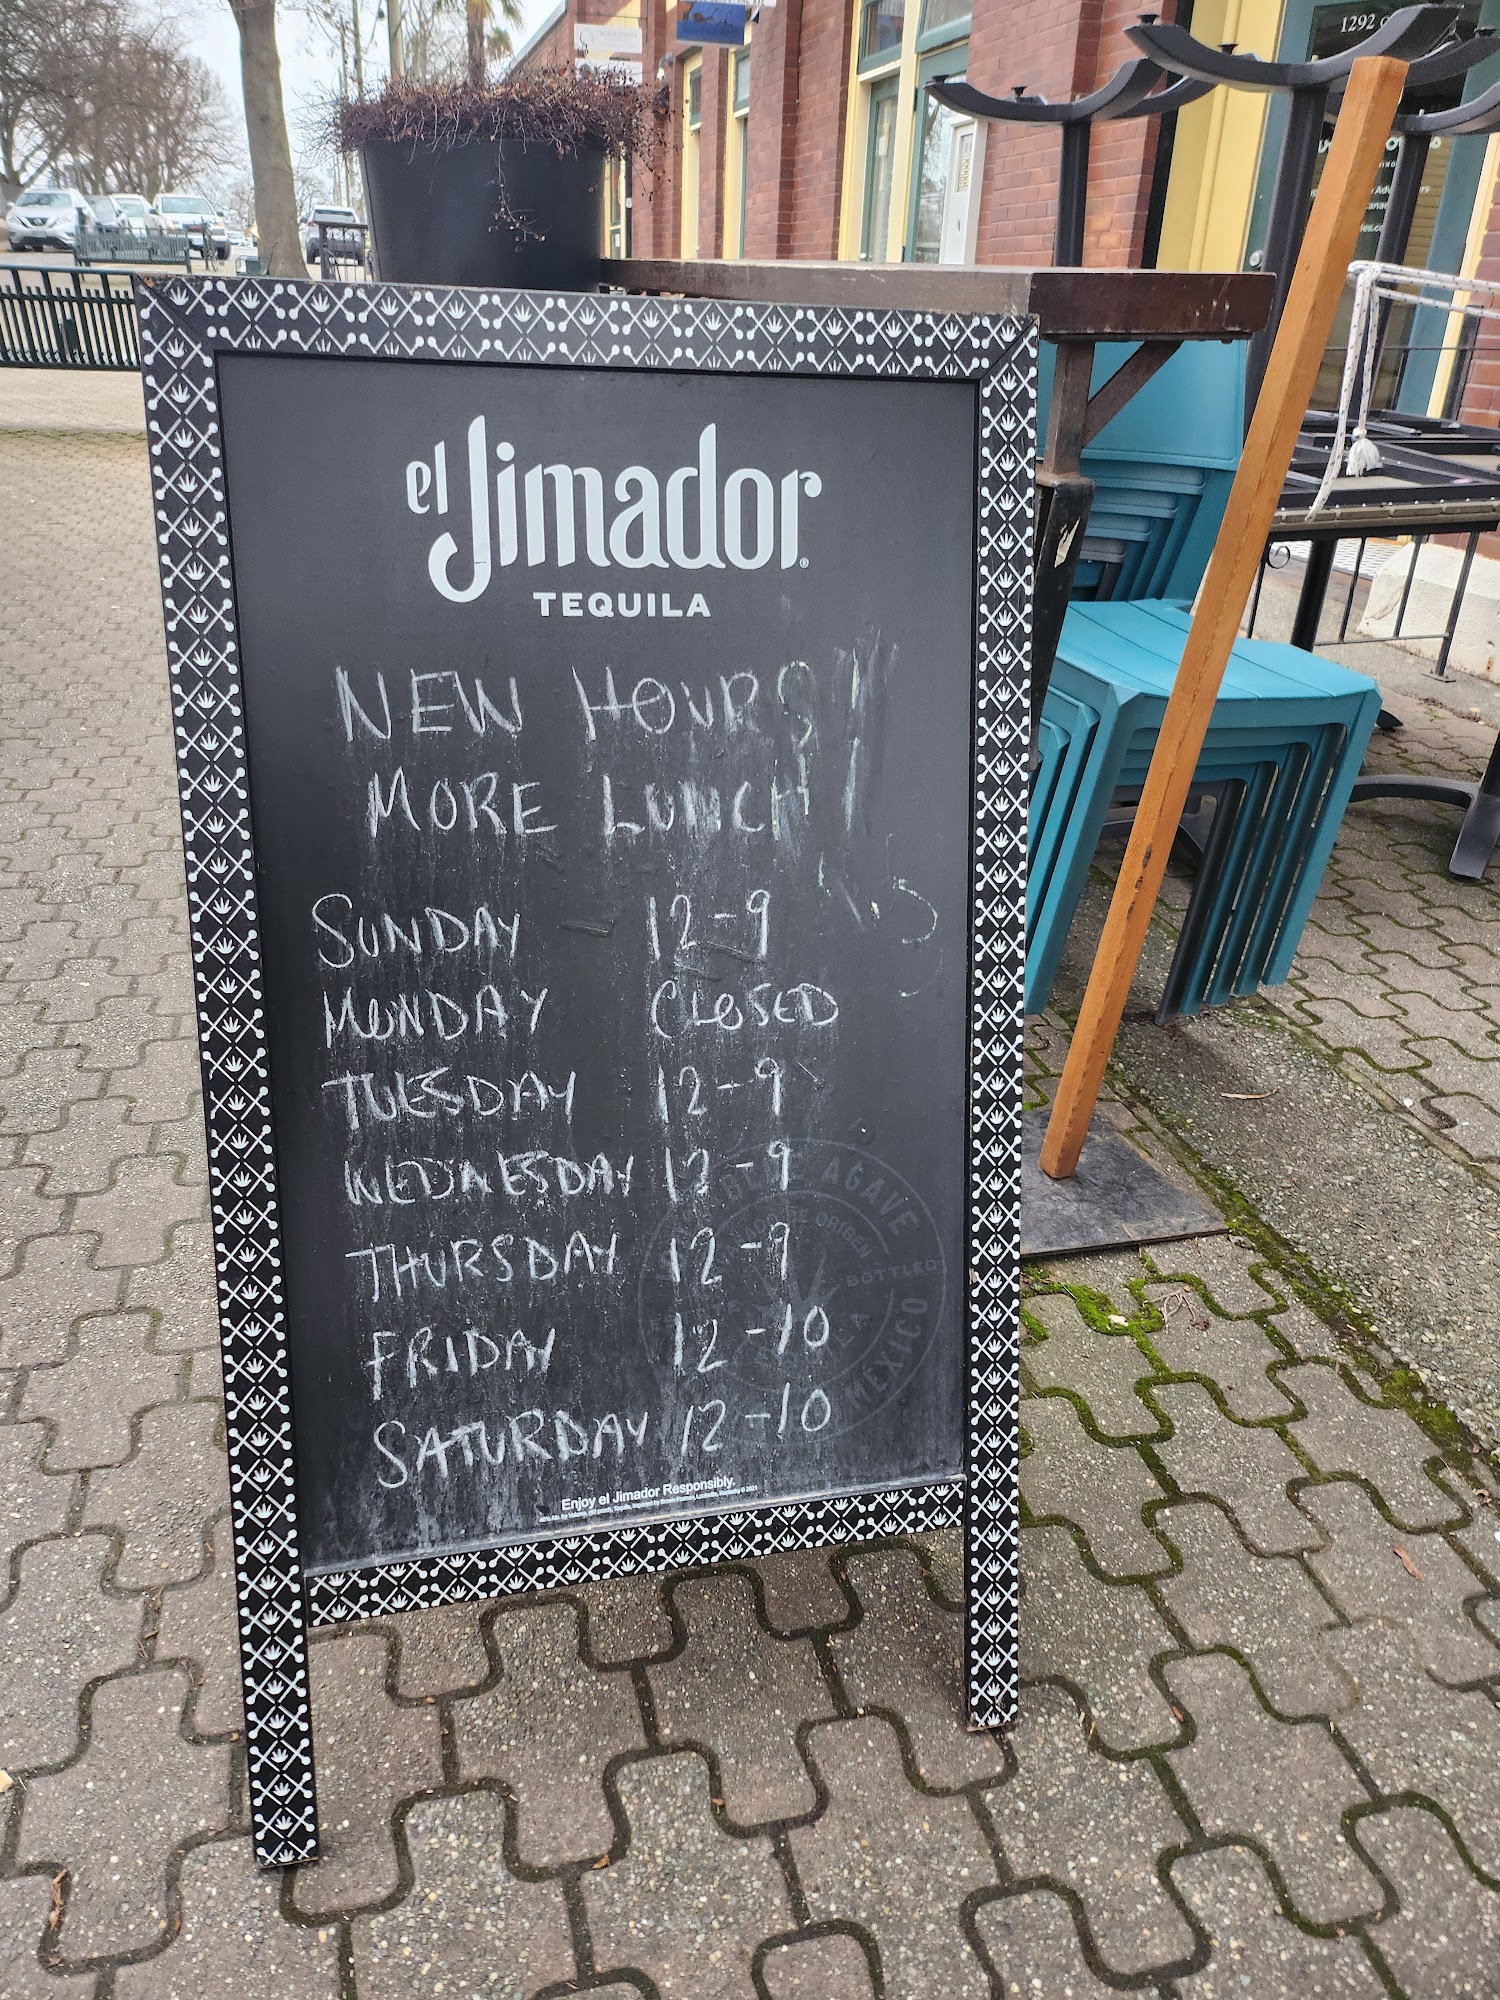 1292
el Jimador
TEQUILA
NEW HOURS!
MORE LUNCH!
SUNDAY 12-9
MONDAY CLOSED
TUESDAY 12-9
WEDNESDAY 12-9
THURSDAY 12-9
FRIDAY 12-10
SATURDAY 12-10
AGAVE
ORIGEN
BOTTLED
MEXICO
Enjoy el Jimador Responsibly.